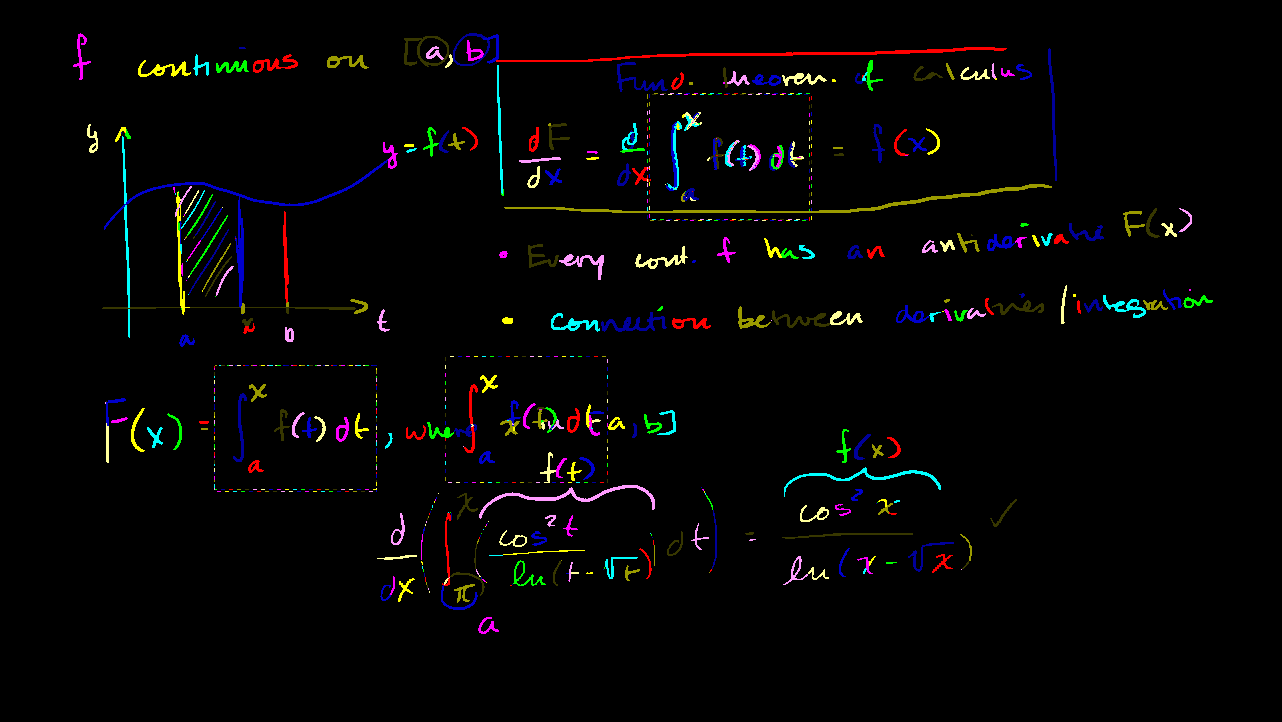 f continuous on [a, b]
Fund. theorem. of calculus
y
y = f(t)
dF/dx = d/dx ∫_a^x f(t) dt = f(x)
• Every cont. f has an antiderivative F(x)
a x b t
• Connection between derivatives / integration
F(x) = ∫_a^x f(t) dt, where a, b]
∫_a^x f(t) dt
f(t)
f(x)
d/dx ( ∫_π^x ( cos² t / ln(t - √t) ) dt ) = cos² x / ln(x - √x) ✓
a